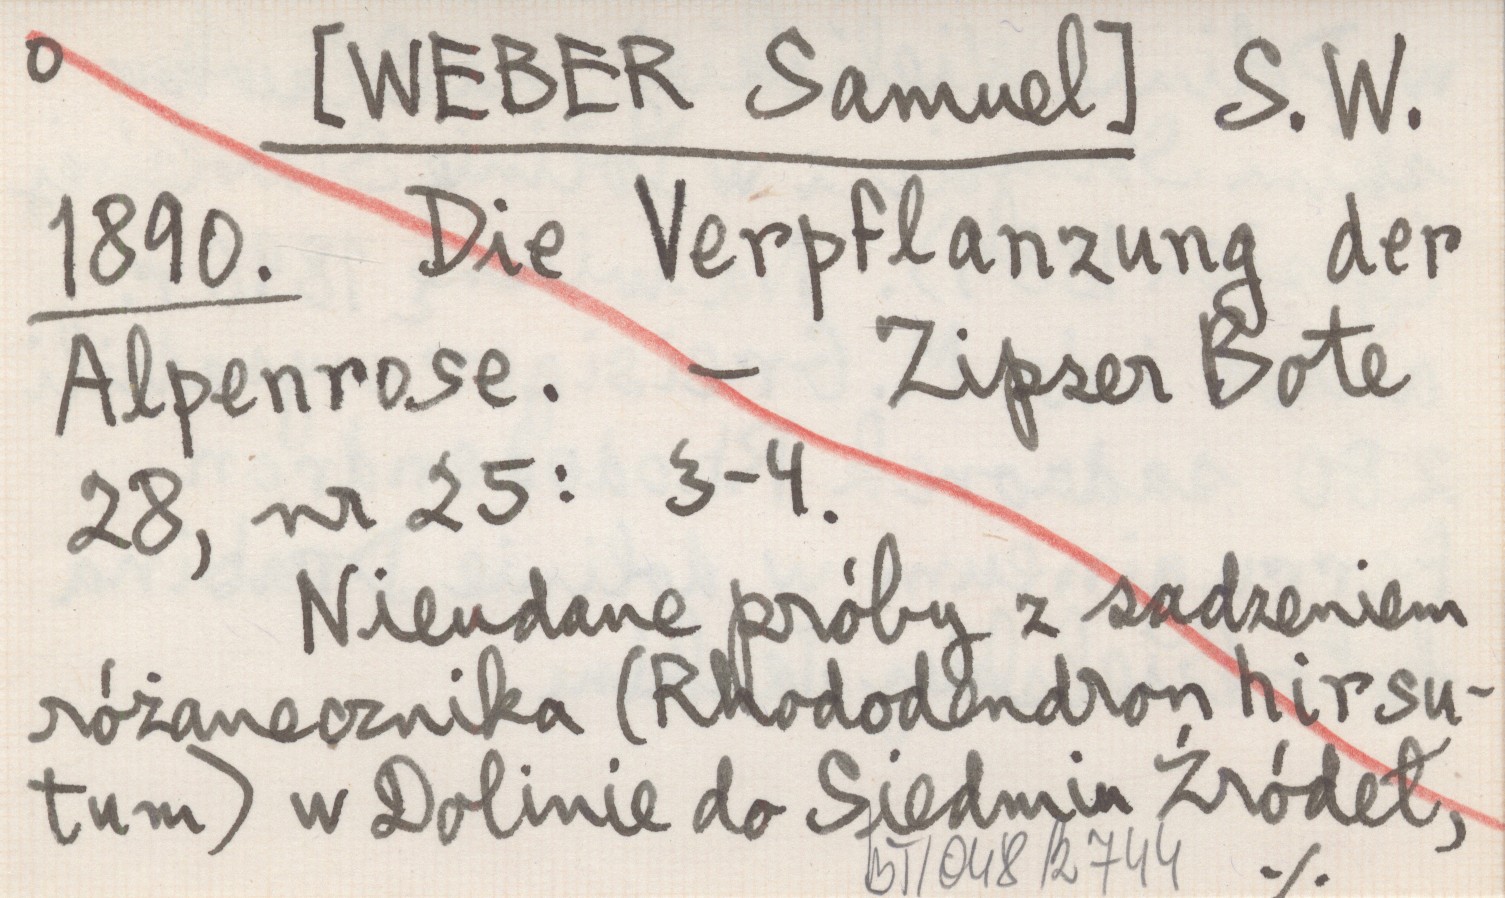 o [WEBER Samuel] S. W.
1890. Die Verpflanzung der
Alpenrose. – Zipser Bote
28, nr 25: 3-4.
Nieudane próby z sadzeniem
różanecznika (Rhododendron hirsu-
tum) w Dolinie do Siedmiu Źródeł,
BT/048/2744 ./.